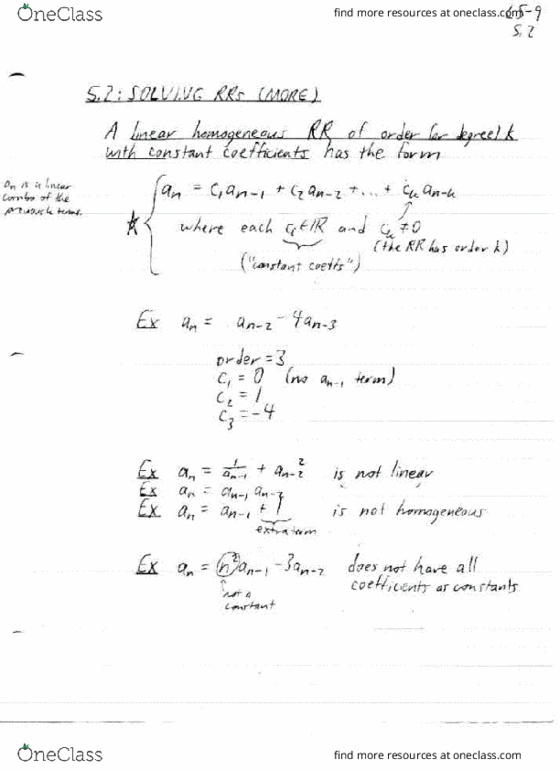 OneClass
find more resources at oneclass.com
5.2
5.2: SOLVING RRs (MORE)
A linear homogeneous RR of order (or degree) k
with constant coefficients has the form
an is a linear
combo of the
previous k terms.
an = c1an-1 + c2an-2 + ... + ckan-k
where each ci∈ℝ and ck≠0
("constant coeffs")
(the RR has order k)
Ex an = an-2 - 4an-3
order = 3
c1 = 0 (no an-1 term)
c2 = 1
c3 = -4
Ex an = 1/an-1 + an-2² is not linear
Ex an = an-1 an-2
Ex an = an-1 + 1 is not homogeneous
extra term
Ex an = n²an-1 - 3an-2 does not have all
coefficients as constants
not a
constant
OneClass
find more resources at oneclass.com